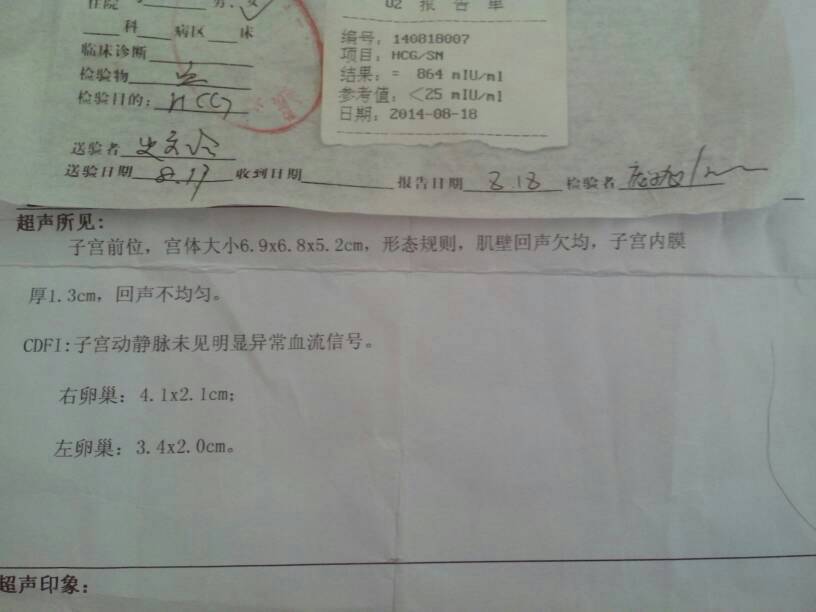 住院 男、女
科 病区 床
临床诊断
检验物
检验目的: HCG
送验者
送验日期 8.17 收到日期 报告日期 8.18 检验者
02 报 告 单
编号: 140818007
项目: HCG/SN
结果: = 864 mIU/ml
参考值: <25 mIU/ml
日期: 2014-08-18
超声所见:
子宫前位，宫体大小6.9x6.8x5.2cm，形态规则，肌壁回声欠均，子宫内膜
厚1.3cm，回声不均匀。
CDFI:子宫动静脉未见明显异常血流信号。
右卵巢: 4.1x2.1cm;
左卵巢: 3.4x2.0cm。
超声印象: